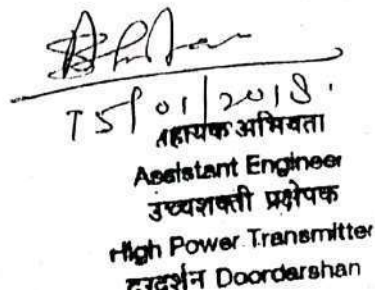 15/01/2018.
सहायक अभियंता
Assistant Engineer
उच्चशक्ती प्रक्षेपक
High Power Transmitter
दूरदर्शन Doordarshan